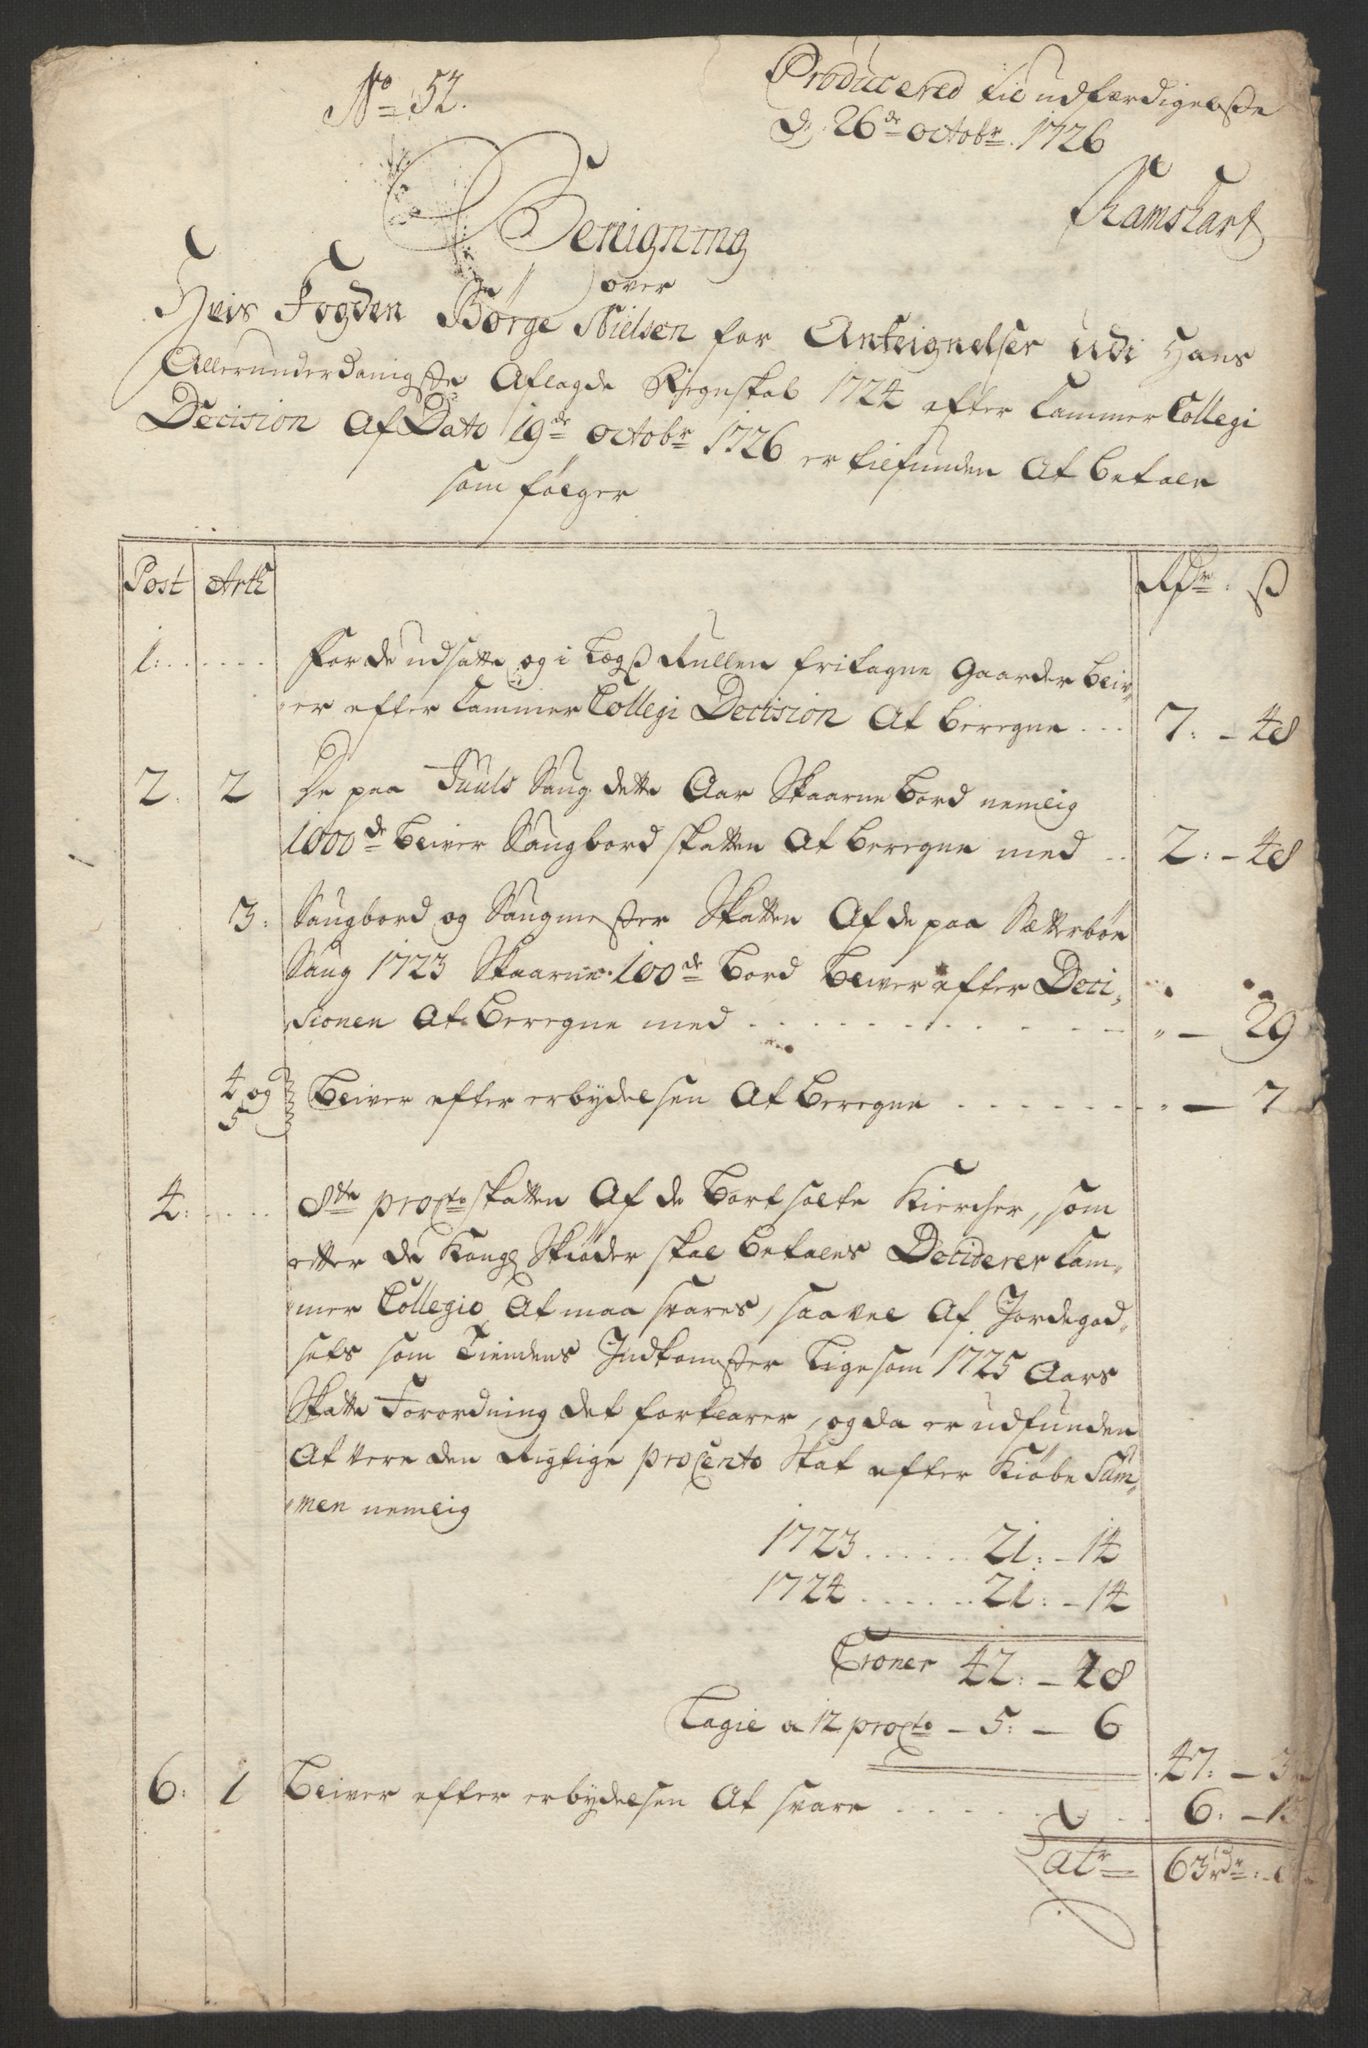 No 52.
Producered til udfærdigelsße
d. 26de octobr. 1726
Ramshart
Beregning
over
Hvis Fogden Børge Nielsen for Anteignelser udi Hans
Allerunderdanigste Aflagde Regnskab 1724 efter Cammer Collegi
Decision Af Dato 19de octobr 1726 er tilfunden At betale
som følger
Post Artl Rdr: ß
1: . . . . . . For de udsatte og i Lægß Rullen fritagne gaarder bliv„
„er efter Cammer Collegi Decision At beregne . . . 7: - 48
2. 2 De paa Juuls Saug dette Aar Skaarne bord nemlig
1000de bliver Saugbord skatten At beregne med . . 2: - 48
3: Saugbord og Saugmester Skatten Af de paa Sætterbøe
Saug 1723 Skaarne 100de bord bliver efter Deci„
„sionen At beregne med . . . . . . . . . . „ - 29
4 og
5 bliver efter erbydelsen At beregne . . . . . . . „ - 7
4: . . . . 8tte procto skatten Af de bortsolte Kiercher, som
etter de Kongl Skiøder skal betales Deciderer Cam„
„mer Collegio At maa svares, saavel Af Jordegod„
sets som Tiendens Indkomster Ligesom 1725 Aars
Skatte Forordning det forklarer, og da er udfunden
At vere den Rigtige procento Skat efter Kiøbe Sum„
„men nemlig
1723 . . . . . . 21: - 14
1724 . . . . . . 21: - 14
Croner 42: - 28
Lagie a 12 procto - 5: - 6
47: - 3
6: 1 bliver efter erbydelsen At svare . . . . . . . 6: - 1
Latr 63rdr: -